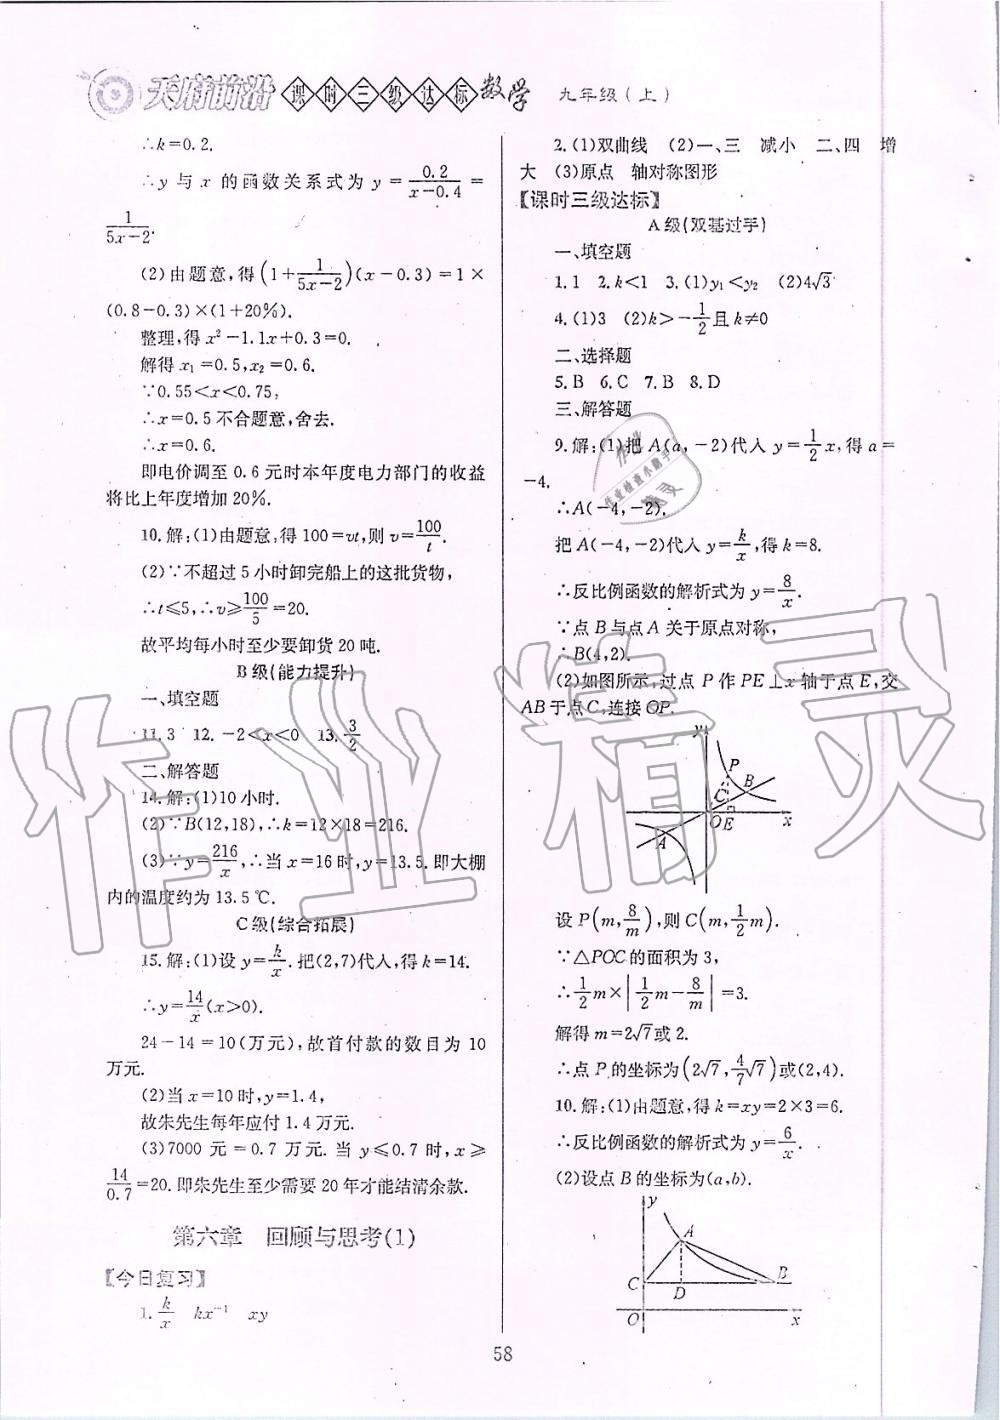 天府前沿 课时三级达标 数学 九年级(上)
∴k=0.2.
∴y 与 x 的函数关系式为 y=0.2/(x-0.4)=
1/(5x-2).
(2)由题意,得(1+1/(5x-2))(x-0.3)=1×
(0.8-0.3)×(1+20%).
整理,得 x²-1.1x+0.3=0.
解得 x₁=0.5,x₂=0.6.
∵0.55<x<0.75,
∴x=0.5 不合题意,舍去.
∴x=0.6.
即电价调至 0.6 元时本年度电力部门的收益
将比上年度增加 20%.
10.解:(1)由题意,得 100=vt,则 v=100/t.
(2)∵不超过 5 小时卸完船上的这批货物,
∴t≤5,∴v≥100/5=20.
故平均每小时至少要卸货 20 吨.
B级(能力提升)
一、填空题
11.3 12.-2<x<0 13.3/2
二、解答题
14.解:(1)10 小时.
(2)∵B(12,18),∴k=12×18=216.
(3)∵y=216/x,∴当 x=16 时,y=13.5.即大棚
内的温度约为 13.5℃.
C级(综合拓展)
15.解:(1)设 y=k/x.把(2,7)代入,得 k=14.
∴y=14/x(x>0).
24-14=10(万元),故首付款的数目为 10
万元.
(2)当 x=10 时,y=1.4,
故朱先生每年应付 1.4 万元.
(3)7000 元=0.7 万元.当 y≤0.7 时,x≥
14/0.7=20.即朱先生至少需要 20 年才能结清余款.
第六章 回顾与思考(1)
【今日复习】
1.k/x kx⁻¹ xy
2.(1)双曲线 (2)一、三 减小 二、四 增
大 (3)原点 轴对称图形
【课时三级达标】
A级(双基过手)
一、填空题
1.1 2.k<1 3.(1)y₁<y₂ (2)4√3
4.(1)3 (2)k>-1/2且 k≠0
二、选择题
5.B 6.C 7.B 8.D
三、解答题
9.解:(1)把 A(a,-2)代入 y=1/2x,得 a=
-4.
∴A(-4,-2).
把 A(-4,-2)代入 y=k/x,得 k=8.
∴反比例函数的解析式为 y=8/x.
∵点 B 与点 A 关于原点对称,
∴B(4,2).
(2)如图所示,过点 P 作 PE⊥x 轴于点 E,交
AB 于点 C,连接 OP.
y
P
C B
O E x
A
设 P(m,8/m),则 C(m,1/2m).
∵△POC 的面积为 3,
∴1/2m×|1/2m-8/m|=3.
解得 m=2√7或 2.
∴点 P 的坐标为(2√7,4/7√7)或(2,4).
10.解:(1)由题意,得 k=xy=2×3=6.
∴反比例函数的解析式为 y=6/x.
(2)设点 B 的坐标为(a,b).
y
A
C D B
O x
58
作业精灵
作业检查小助手